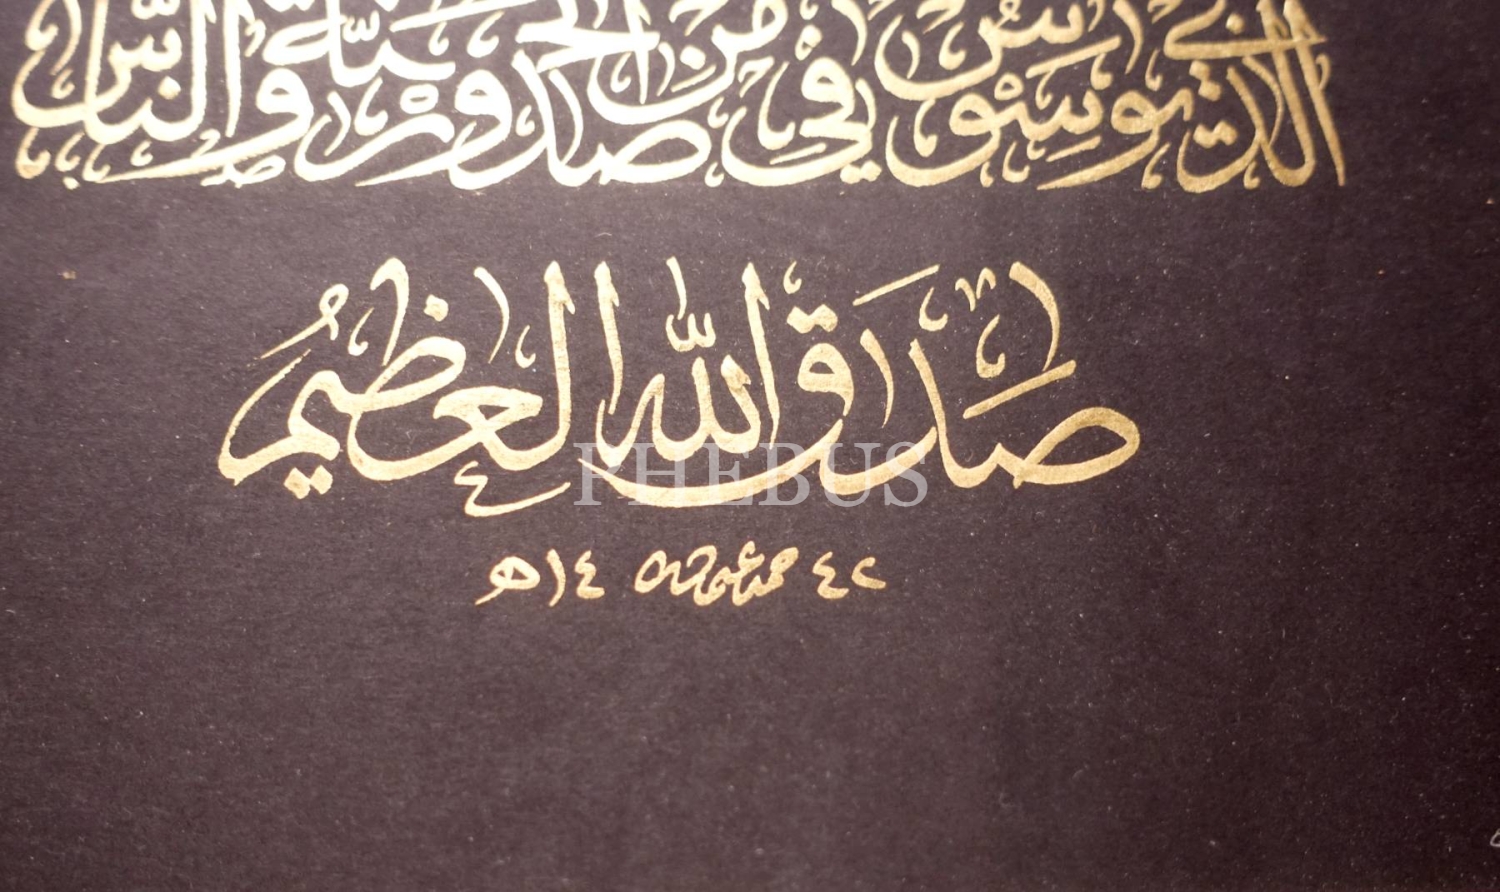 الَّذِي يُوَسْوِسُ فِي صُدُورِ النَّاسِ مِنَ الْجِنَّةِ وَالنَّاسِ
صَدَقَ اللّٰه الْعَظِيمُ
PHEBUS
٤٢ ١٤هـ